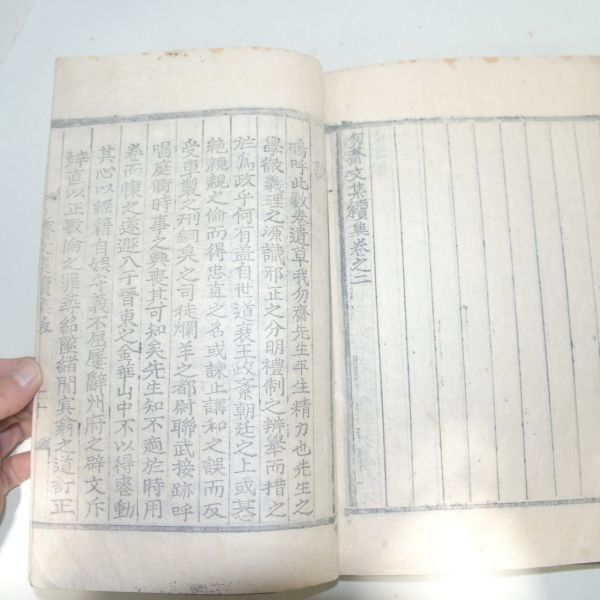 勿齋文集續集卷之二
嗚呼此數卷遺草我勿齋先生平生精力也先生之
學微義理之源識邪正之分明禮制之辨擧而措之
於爲政乎何有盖自世道衰王政紊朝廷之上或惎
絶親親之倫而得忠直之名或諫止講和之誤而反
受車製之刑餇矣之司徒爛羊之都尉聯武接跡呼
唱庭衢時事之興喪其可知矣先生知不適於時用
卷而懷之逐遯入于晉東之金華山中不以得喪動
其心以經籍自娛守義不屈屢辭州府之辟文斥
直以正數倫之罪辜紹墜緖闡寘翁之道訂正